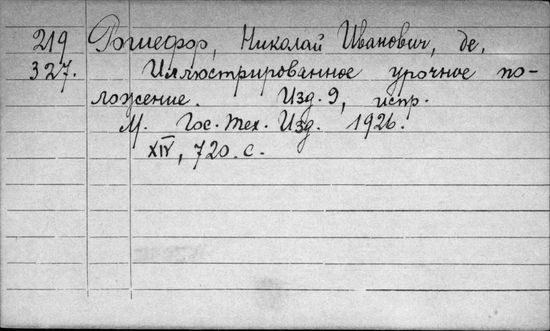 219 Рошефор, Николай Иванович, де.
327. Иллюстрированное урочное по-
ложение. Изд. 9, испр.
М. Гос. Тех. Изд. 1926.
XIV, 720. с.